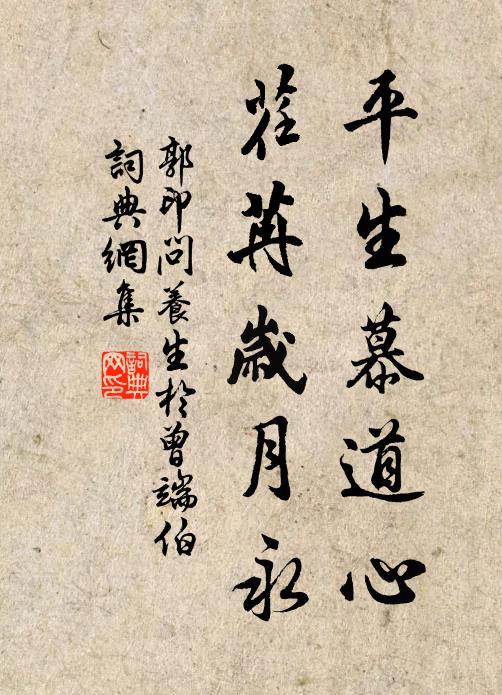 平生慕道心
荏苒歲月永
郭印問養生於曾端伯
詞典網集
詞典网印